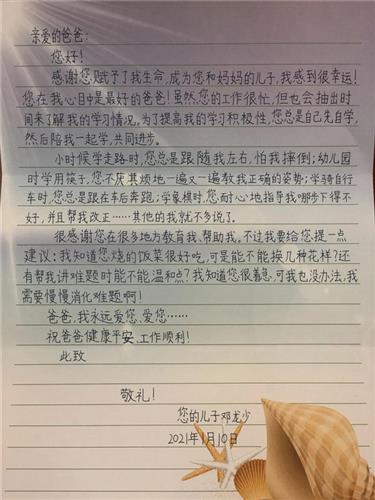 亲爱的爸爸：
您好！
感谢您赋予了我生命，成为您和妈妈的儿子，我感到很幸运！
您在我心目中是最好的爸爸！虽然您的工作很忙，但也会抽出时
间来了解我的学习情况。为了提高我的学习积极性，您总是自己先自学，
然后陪我一起学，共同进步。
小时候学走路时，您总是跟随我左右，怕我摔倒；幼儿园
时学用筷子，您不厌其烦地一遍又一遍教我正确的姿势；学骑自行
车时，您总是跟在车后奔跑；学象棋时，您耐心地指导我哪步下得不
好，并且帮我改正……其他的我就不多说了。
很感谢您在很多地方教育我、帮助我。不过我要给您提一点
建议：我知道您烧的饭菜很好吃，可是能不能换几种花样？还
有帮我讲难题时能不能温和点？我知道您很着急，可我也没办法，我
需要慢慢消化难题啊！
爸爸，我永远爱您、爱您……
祝爸爸健康平安、工作顺利！
此致
敬礼！
您的儿子邓龙少
2021年1月10日